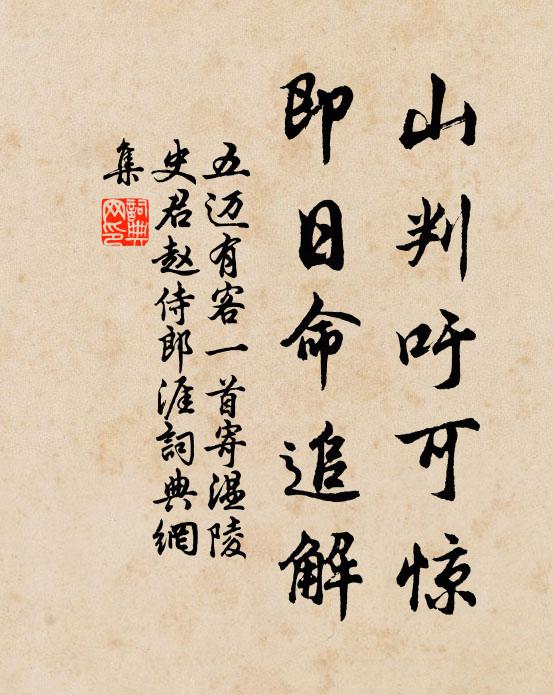 山判吁可惊
即日命追解
五迈有客一首寄温陵
史君赵侍郎涯詞典網
集
詞典网印